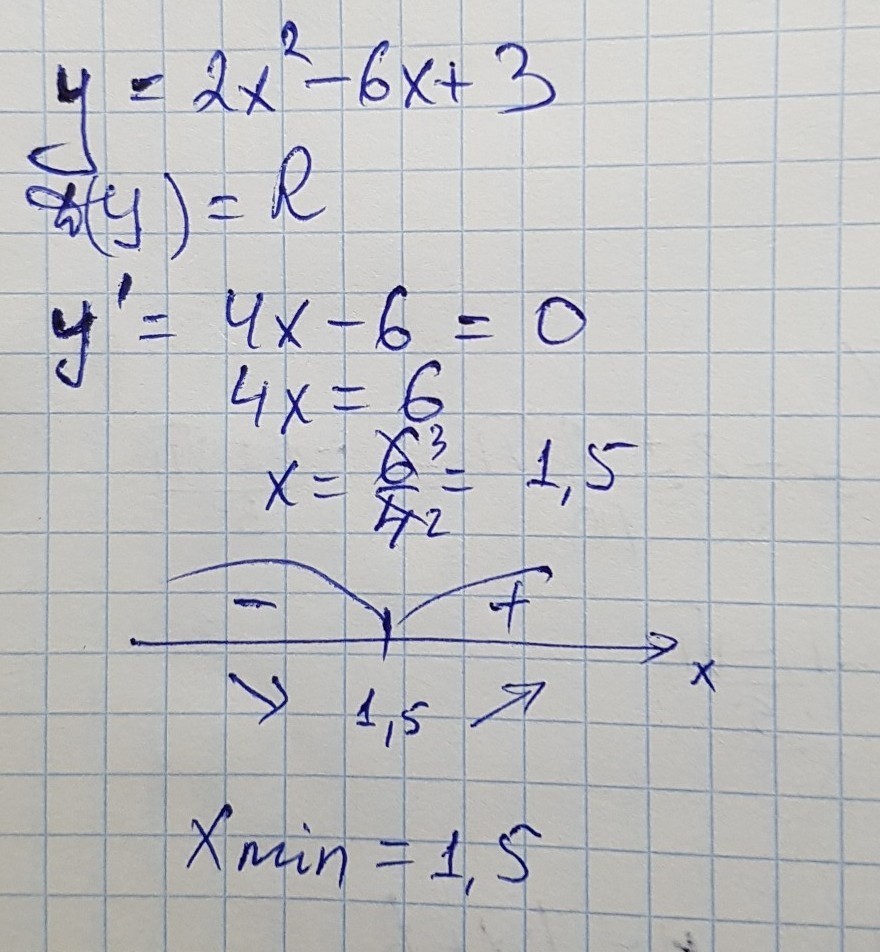 y = 2x² - 6x + 3
(y) = R
y' = 4x - 6 = 0
4x = 6
x = 6³/4₂ = 1,5
- +
x
↘ 1,5 ↗
Xmin = 1,5